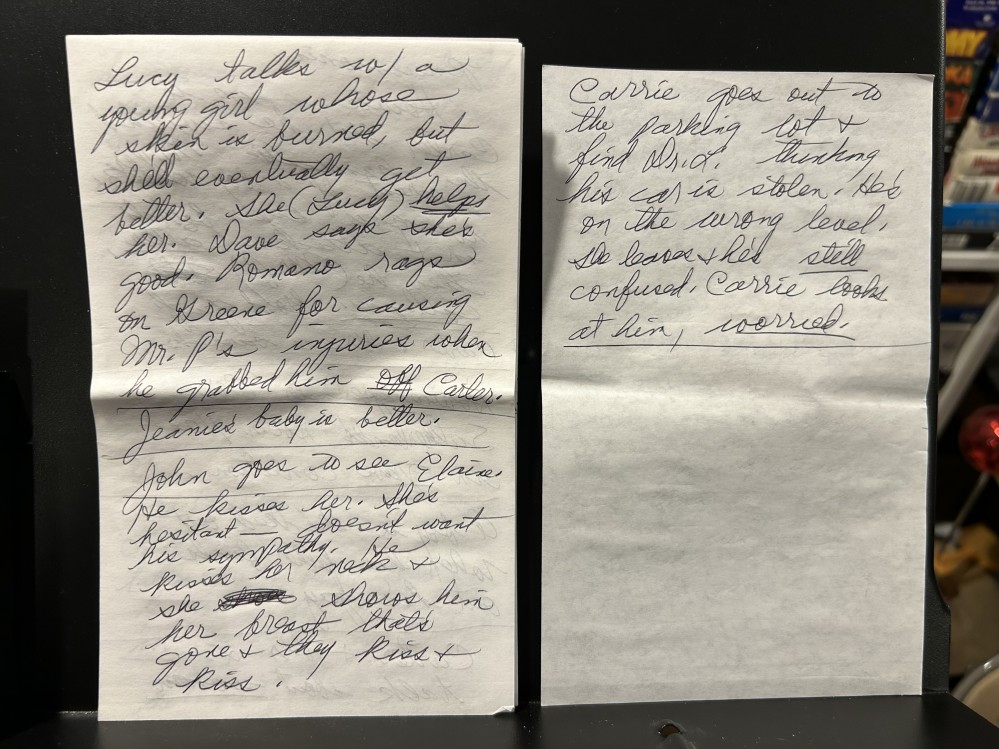 Lucy talks w/ a
young girl whose
skin is burned, but
she'll eventually get
better. She (Lucy) helps
her. Dave says she's
good. Romano rags
on Greene for causing
Mr. P's injuries when
he grabbed him off Carter.
Jeanie's baby is better.
John goes to see Elaine.
He kisses her. She's
hesitant — doesn't want
his sympathy. He
kisses her neck &
she shows him
her breast that's
gone & they kiss &
kiss.
Carrie goes out to
the parking lot &
find Dr. L. thinking
his car is stolen. He's
on the wrong level.
She leaves & he's still
confused. Carrie looks
at him, worried.
MY